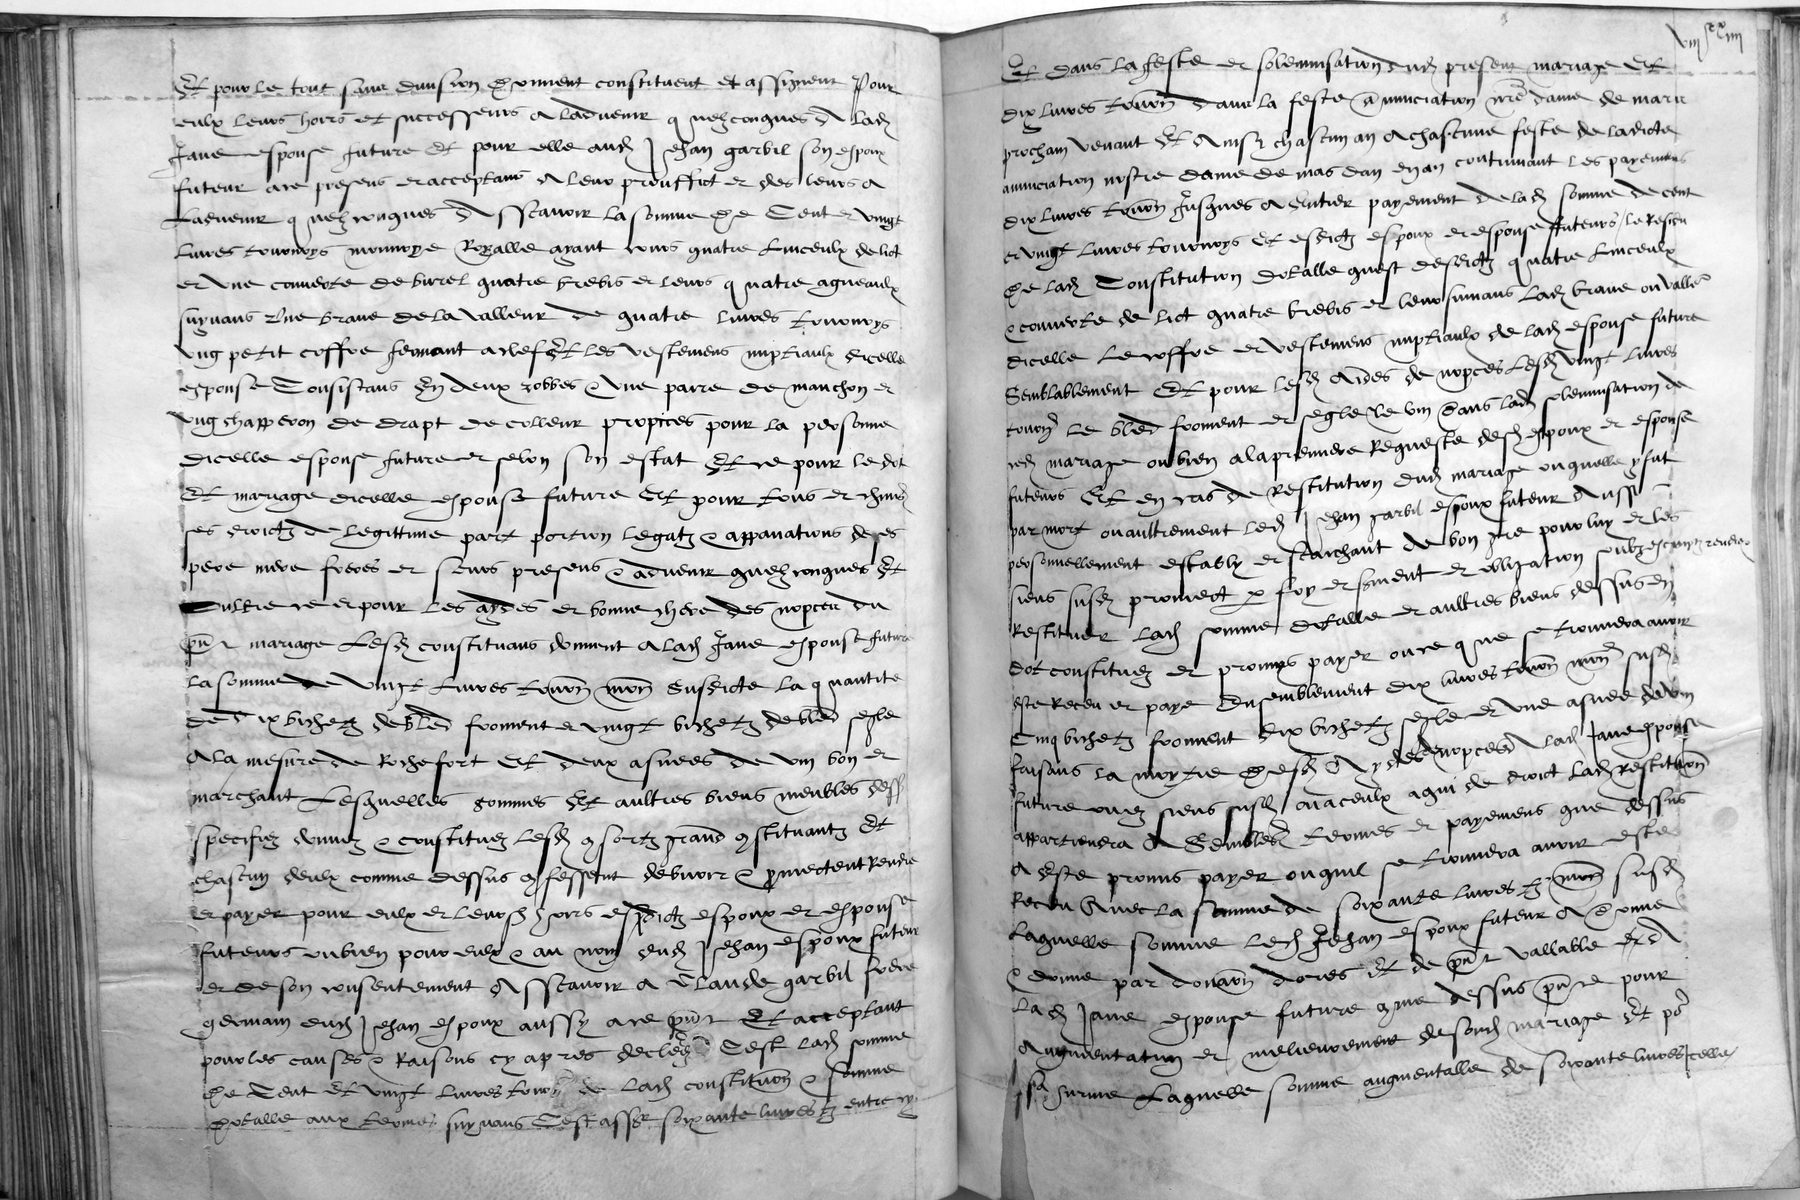 Et pour le tout sans division donnent constituent et assignent pour
eulx leurs hoirs et successeurs a ladvenir quelzconques A lad
Jane espouse future Et pour elle aud Jehan garbil son espoux
futeur ace presens et acceptans A leur prouffict et des leurs a
Ladvenir quelzconques Assavoir la somme de Cent et vingt
livres tournoys monnoye Royalle ayant cours quatre linceulx de lict
et une couverte de burel quatre brebis et leurs quatre agneaulx
suyvans Une brave de la valleur de quatre livres tournoys
ung petit coffre fermant a clef Et les vestemens nuptiaulx dicelle
espouse Consistans En deux robbes & une parre de manchon et
ung chapperon de drapt de colleur propices pour la personne
dicelle espouse future et selon son estat Et ce pour le dot
Et mariage dicelle espouse future Et pour tous et chun
ses droictz de legittime part portion legatz & appanations de ses
pere mere freres et seurs presens & advenir quelzconques Et
Oultre ce et pour les aydes et bonne chere des nopces du
pnt mariage Lesd constituans donnent a lad Jane espouse future
la somme de vingt livres tourn monn susdicte la quantite
de dix bichetz de bled froment et vingt bichetz de bled segle
A la mesure de Rochefort Et deux asnees de vin bon et
marchant Lesquelles sommes Et aultres biens meubles dess
speciffiez donnez & constituez lesd consortz grand constituantz Et
chascun deulx comme dessus confessent debvoir & promectent Rendre
et payer pour eulx et leursd hoirs esdictz espoux et espouse
futeurs ou bien pour eulx & au nom dud Jehan espoux futeur
et de son consentement Assavoir A Claude garbil frere
germain dud Jehan espoux aussy ace pnt Et acceptant
pour les causes & Raisons cy apres declez Cest lad somme
de Cent Et vingt livres tourn de lad constituon & somme
dotalle aux termes suyvans Cest assr soixante livres tz entre cy
viii xx iiii
Et dans la feste et solempnisation dud present mariage Et
dix livres tourn dans la feste Annunciation nre dame de mars
prochain venant Et Ainsy chascun an A chascune feste de ladicte
annunciation nostre dame de mars dan en an continuant les payemens
dix livres tourn Jusques A Entier payement de lad somme de cent
et vingt livres tournoys Et esdictz espoux et espouse futeurs / le Restu
de lad Constitution dotalle quest desdictz quatre linceulx
& couverte de lict quatre brebis et leur suivans lad brave ou valleur
dicelle le coffre et vestemens nuptiaulx de lad espouse future
Semblablement Et pour lesd Aides de nopces lesd vingt livres
tourn le bled froment et segle le vin dans lad solempnisation de
ced mariage ou bien a la premiere Requeste desd espoux et espouse
futeurs Et en cas de Restitution dud mariage ou quelle y fut
par mort ou aultrement led Jehan garbil espoux futeur Aussi
personnellement estably et saichant de bon gre pour luy et les
siens susd promect p foy et srment et obligation soubzescriptz rendre
Restituer lad somme dotalle et aultres biens dessus en
dot constituez et promys payer ou ce que se trouvera avoir
este Receu et paye Ensemblement dix livres tourn monn susd
Cinq bichetz froment dix bichetz segle et une asnee de vin
faisans la moytie desd Aydes de nopces A lad Jane espouse
future ou ez siens susd ou a ceulx a qui de droict lad Restitution
appartiendra A Semblables termes et payemens que dessus
A Este promis payer ou quil se trouvera avoir este
Receu Avec la somme de soixante livres tz monn susd
Laquelle somme led Jehan espoux futeur A donne
& donne par donaon dores Et de pnt vallable A
lad Jane espouse future come dessus pnte pour
Augmentation et melieurement de sond mariage Et po
sa survie Laquelle somme augmentalle de soixante livres icelle